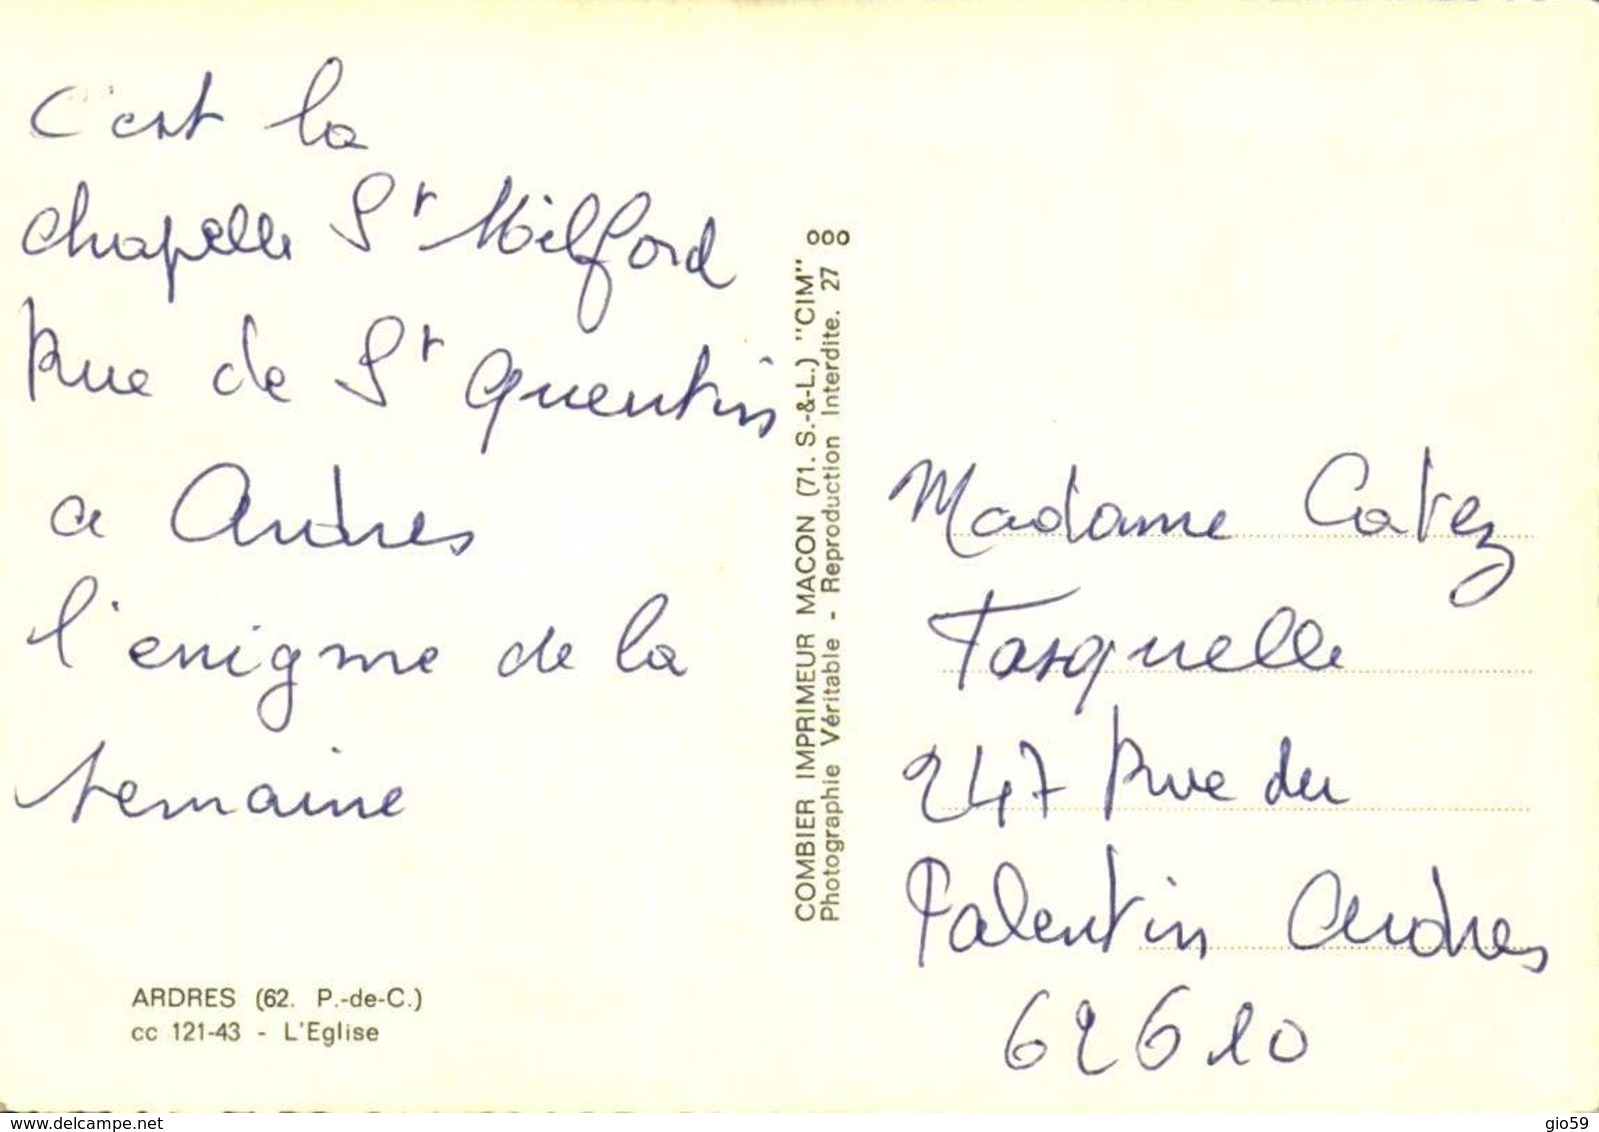 C'est la
chapelle St Milford
Rue de St Quentin
a Ardres
l'enigme de la
semaine
ARDRES (62. P.-de-C.)
cc 121-43 - L'Eglise
COMBIER IMPRIMEUR MACON (71. S.-&-L.) "CIM"
Photographie Véritable - Reproduction Interdite. 27
Madame Catez
Fasquelle
247 Rue du
Palentin Ardres
62610
www.delcampe.net
gio59